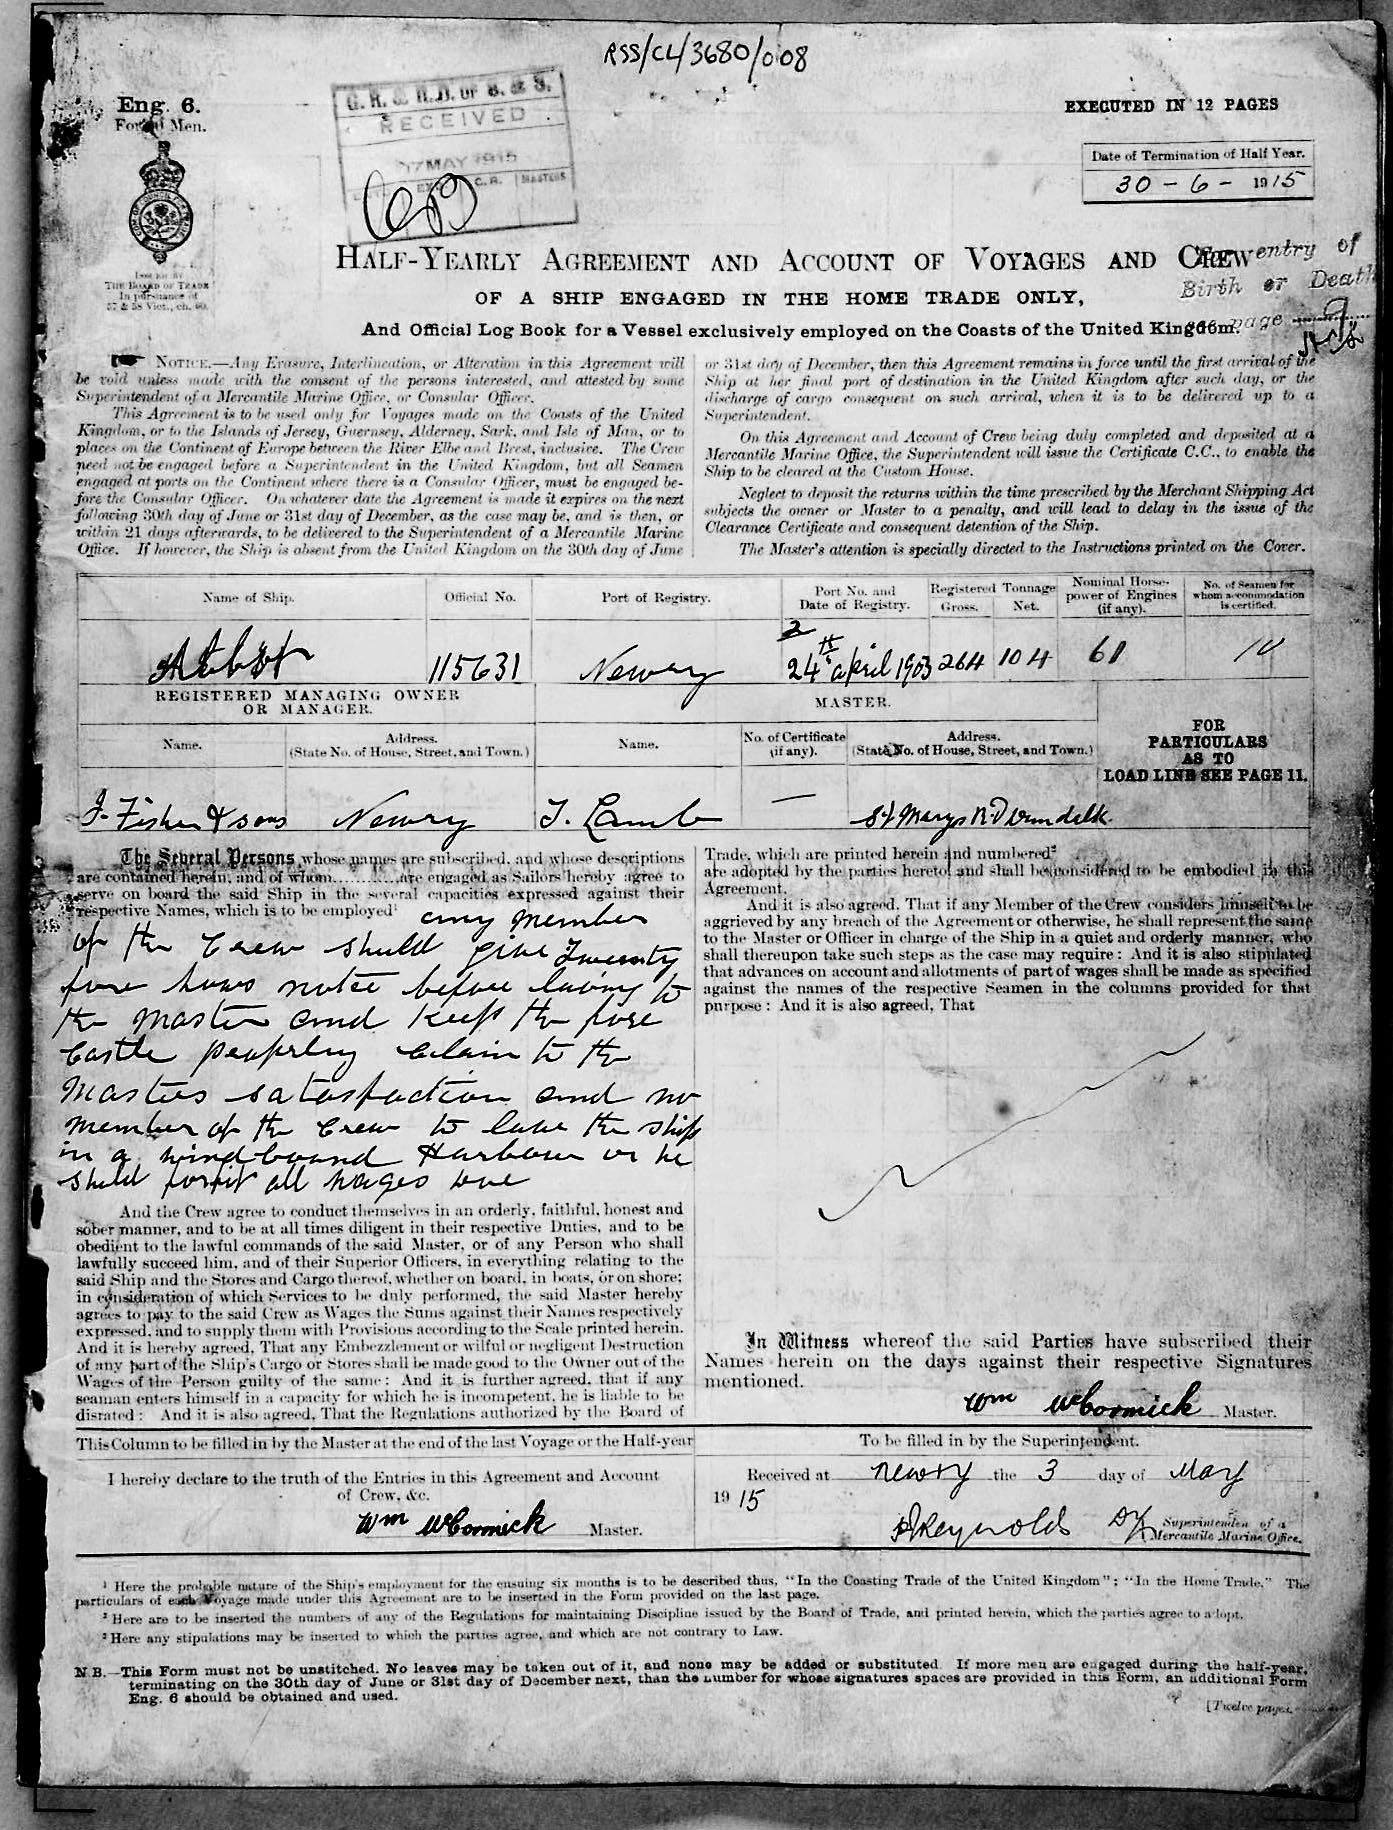 RSS/CL/3680/008
Eng. 6.
Men.
G. R. & R.D. OF S. & S.
RECEIVED
17 MAY 1915
C.R. MASTERS
EXECUTED IN 12 PAGES
Date of Termination of Half Year.
30 - 6 - 1915
ISSUED BY
THE BOARD OF TRADE
In pursuance of
57 & 58 Vict., ch. 60.
HALF-YEARLY AGREEMENT AND ACCOUNT OF VOYAGES AND CREW
OF A SHIP ENGAGED IN THE HOME TRADE ONLY,
And Official Log Book for a Vessel exclusively employed on the Coasts of the United Kingdom.
entry of
Birth or Death
see page 9
NOTICE.—Any Erasure, Interlineation, or Alteration in this Agreement will
be void unless made with the consent of the persons interested, and attested by some
Superintendent of a Mercantile Marine Office, or Consular Officer.
This Agreement is to be used only for Voyages made on the Coasts of the United
Kingdom, or to the Islands of Jersey, Guernsey, Alderney, Sark, and Isle of Man, or to
places on the Continent of Europe between the River Elbe and Brest, inclusive. The Crew
need not be engaged before a Superintendent in the United Kingdom, but all Seamen
engaged at ports on the Continent where there is a Consular Officer, must be engaged be-
fore the Consular Officer. On whatever date the Agreement is made it expires on the next
following 30th day of June or 31st day of December, as the case may be, and is then, or
within 21 days afterwards, to be delivered to the Superintendent of a Mercantile Marine
Office. If however, the Ship is absent from the United Kingdom on the 30th day of June
or 31st day of December, then this Agreement remains in force until the first arrival of the
Ship at her final port of destination in the United Kingdom after such day, or the
discharge of cargo consequent on such arrival, when it is to be delivered up to a
Superintendent.
On this Agreement and Account of Crew being duly completed and deposited at a
Mercantile Marine Office, the Superintendent will issue the Certificate C.C., to enable the
Ship to be cleared at the Custom House.
Neglect to deposit the returns within the time prescribed by the Merchant Shipping Act
subjects the owner or Master to a penalty, and will lead to delay in the issue of the
Clearance Certificate and consequent detention of the Ship.
The Master's attention is specially directed to the Instructions printed on the Cover.
Name of Ship.
Official No.
Port of Registry.
Port No. and
Date of Registry.
Registered Tonnage
Gross.
Net.
Nominal Horse-
power of Engines
(if any).
No. of Seamen for
whom accommodation
is certified.
115631
Newry
2
24th april 1903
264
104
61
10
REGISTERED MANAGING OWNER
OR MANAGER.
MASTER.
Name.
Address.
(State No. of House, Street, and Town.)
Name.
No. of Certificate
(if any).
Address.
(State No. of House, Street, and Town.)
FOR
PARTICULARS
AS TO
LOAD LINE SEE PAGE 11.
J. Fisher & sons
Newry
J. Lamb
—
St Marys Rd Dundalk.
The Several Persons whose names are subscribed, and whose descriptions
are contained herein, and of whom..........are engaged as Sailors hereby agree to
serve on board the said Ship in the several capacities expressed against their
respective Names, which is to be employed¹ any member
of the Crew should give Twenty
foure hours notce before leiving to
the Master and Keep the fore
Castle properley Clain to the
Masters satasfaction and no
member of the Crew to leave the ship
in a windbound Harbour or he
should forfit all wages due
And the Crew agree to conduct themselves in an orderly, faithful, honest and
sober manner, and to be at all times diligent in their respective Duties, and to be
obedient to the lawful commands of the said Master, or of any Person who shall
lawfully succeed him, and of their Superior Officers, in everything relating to the
said Ship and the Stores and Cargo thereof, whether on board, in boats, or on shore;
in consideration of which Services to be duly performed, the said Master hereby
agrees to pay to the said Crew as Wages the Sums against their Names respectively
expressed, and to supply them with Provisions according to the Scale printed herein.
And it is hereby agreed, That any Embezzlement or wilful or negligent Destruction
of any part of the Ship's Cargo or Stores shall be made good to the Owner out of the
Wages of the Person guilty of the same: And it is further agreed, that if any
seaman enters himself in a capacity for which he is incompetent, he is liable to be
disrated: And it is also agreed, That the Regulations authorized by the Board of
Trade, which are printed herein and numbered²
are adopted by the parties hereto, and shall be considered to be embodied in this
Agreement.
And it is also agreed, That if any Member of the Crew considers himself to be
aggrieved by any breach of the Agreement or otherwise, he shall represent the same
to the Master or Officer in charge of the Ship in a quiet and orderly manner, who
shall thereupon take such steps as the case may require: And it is also stipulated
that advances on account and allotments of part of wages shall be made as specified
against the names of the respective Seamen in the columns provided for that
purpose: And it is also agreed, That
In Witness whereof the said Parties have subscribed their
Names herein on the days against their respective Signatures
mentioned.
Wm McCormick Master.
This Column to be filled in by the Master at the end of the last Voyage or the Half-year
I hereby declare to the truth of the Entries in this Agreement and Account
of Crew, &c.
Wm McCormick Master.
To be filled in by the Superintendent.
Received at Newry the 3 day of May
1915
Reynolds Superintendent of a
Mercantile Marine Office.
¹ Here the probable nature of the Ship's employment for the ensuing six months is to be described thus, "In the Coasting Trade of the United Kingdom"; "In the Home Trade." The
particulars of each Voyage made under this Agreement are to be inserted in the Form provided on the last page.
² Here are to be inserted the numbers of any of the Regulations for maintaining Discipline issued by the Board of Trade, and printed herein, which the parties agree to adopt.
³ Here any stipulations may be inserted to which the parties agree, and which are not contrary to Law.
N.B.—This Form must not be unstitched. No leaves may be taken out of it, and none may be added or substituted. If more men are engaged during the half-year,
terminating on the 30th day of June or 31st day of December next, than the number for whose signatures spaces are provided in this Form, an additional Form
Eng. 6 should be obtained and used.
[Twelve pages.